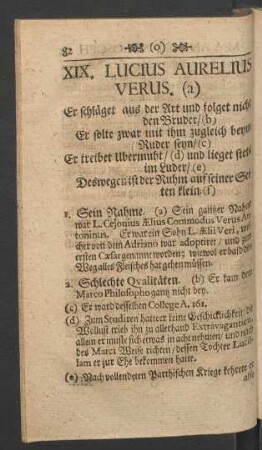 82 (o)
XIX. LUCIUS AURELIUS
VERUS. (a)
Er schläget aus der Art und folget nicht
den Bruder/(b)
Er solte zwar mit ihm zugleich beym
Ruder seyn/(c)
Er treibet Ubermuht/(d) und lieget stets
im Luder/(e)
Deswegen ist der Ruhm auf seiner Sei-
ten klein.(f)
1. Sein Nahme. (a) Sein gantzer Nahme
war L. Cejonius Ælius Commodus Verus An-
toninus. Er war ein Sohn L. Ælii Veri, wel-
cher von dem Adriano war adoptiret / und zum
ersten Cæsar genannt worden; wiewol er bald den
Weg alles Fleisches hat gehen müssen.
2. Schlechte Qvalitäten. (b) Er kam dem
Marco Philosopho gantz nicht bey.
(c) Er ward desselben College A. 161.
(d) Zum Studiren hatte er keine Geschicklichkeit/die
Wollust trieb ihn zu allerhand Extravagantien,
allein er muste sich etwas in acht nehmen/ und nach
des Marci Weise richten/ dessen Tochter Lucil-
lam er zur Ehe bekommen hatte.
(e) Nach vollendeten Parthischen Kriege kehrete er